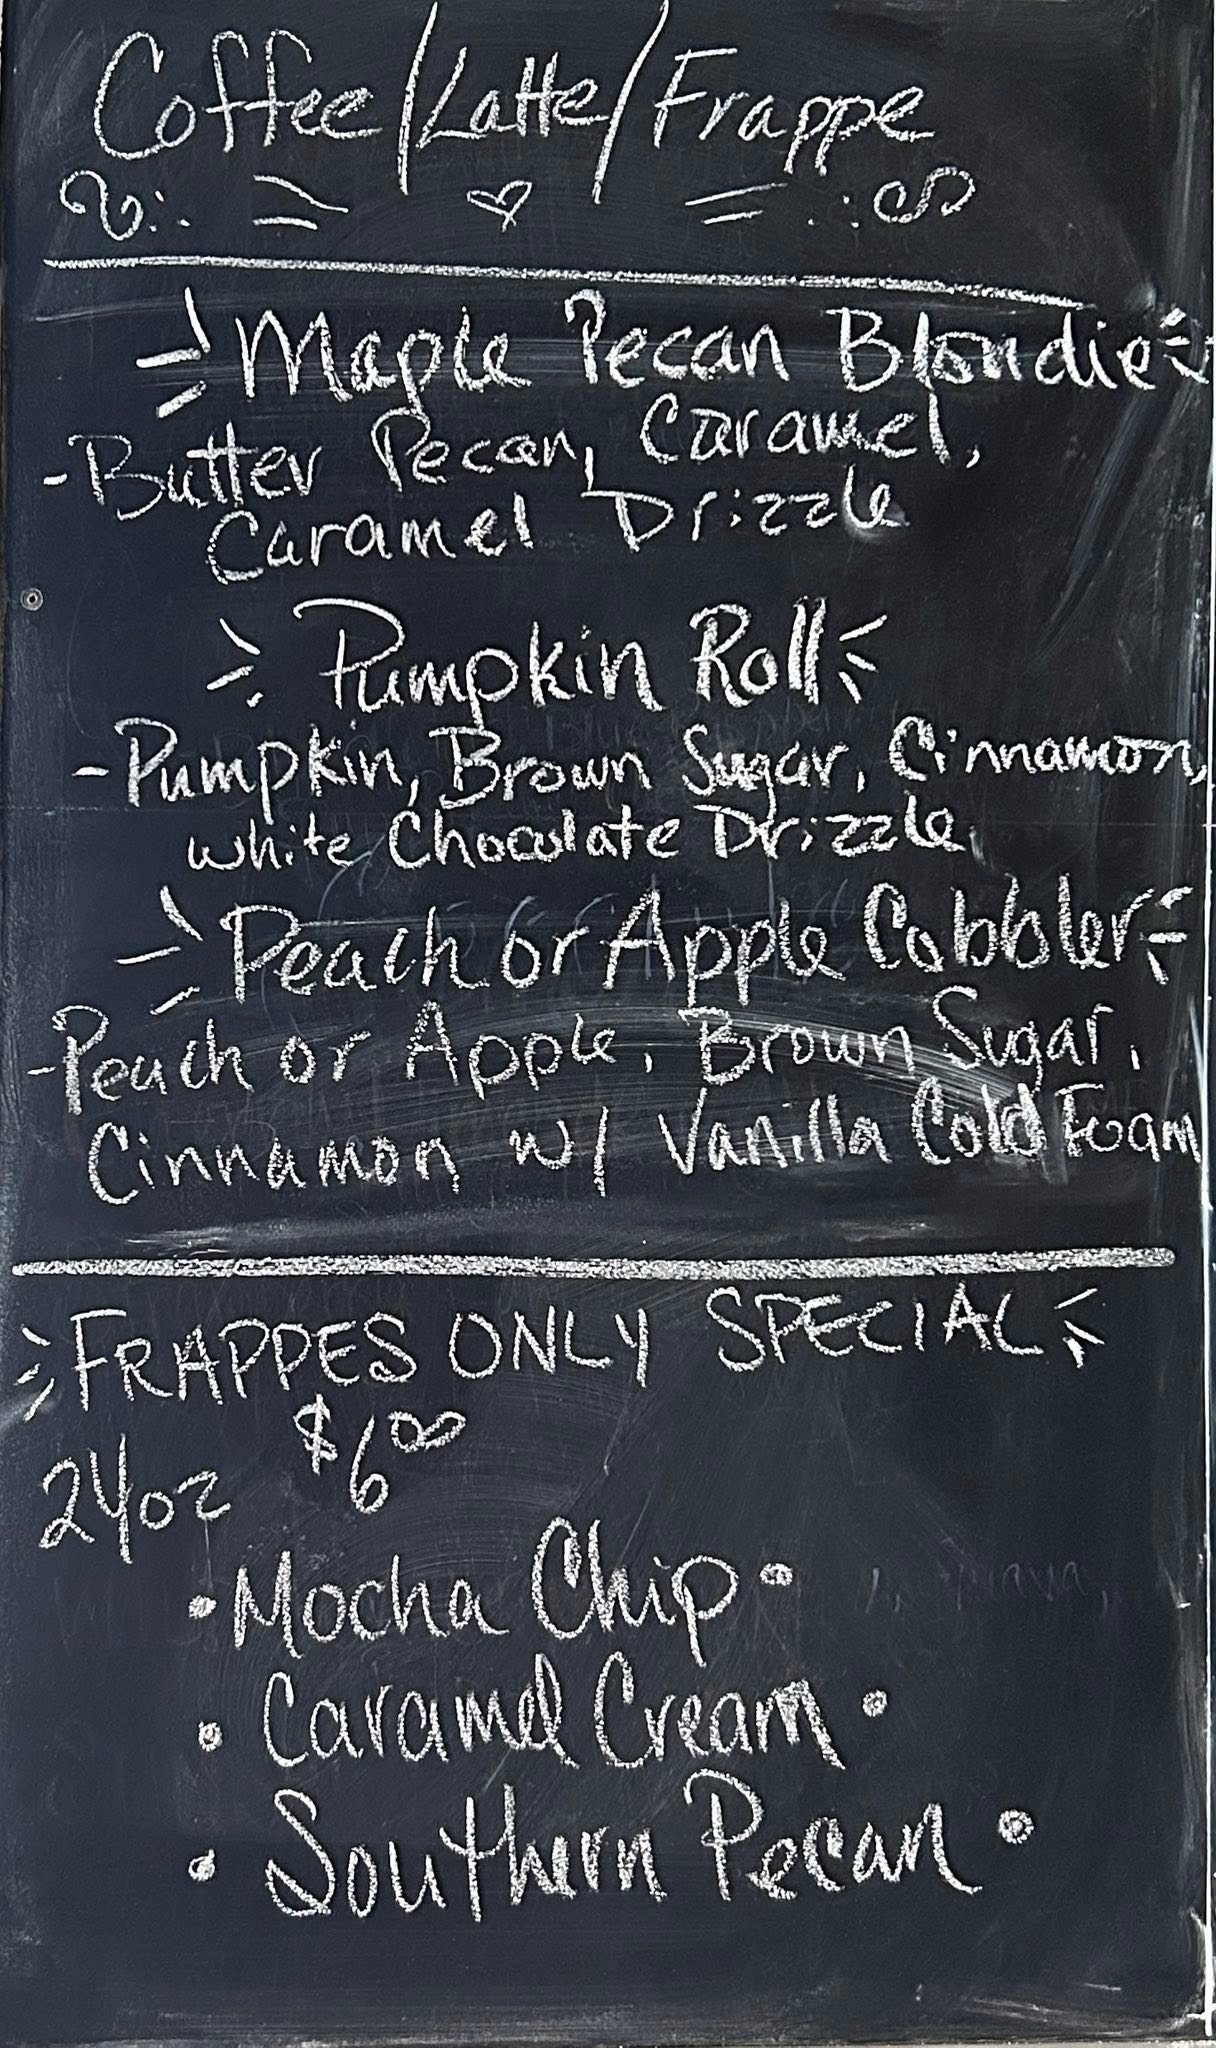 Coffee/Latte/Frappe
Maple Pecan Blondie
-Butter Pecan, Caramel,
Caramel Drizzle
Pumpkin Roll
-Pumpkin, Brown Sugar, Cinnamon,
white Chocolate Drizzle
Peach or Apple Cobbler
-Peach or Apple, Brown Sugar,
Cinnamon w/ Vanilla Cold Foam
FRAPPES ONLY SPECIAL
24oz $6.00
• Mocha Chip •
• Caramel Cream •
• Southern Pecan •